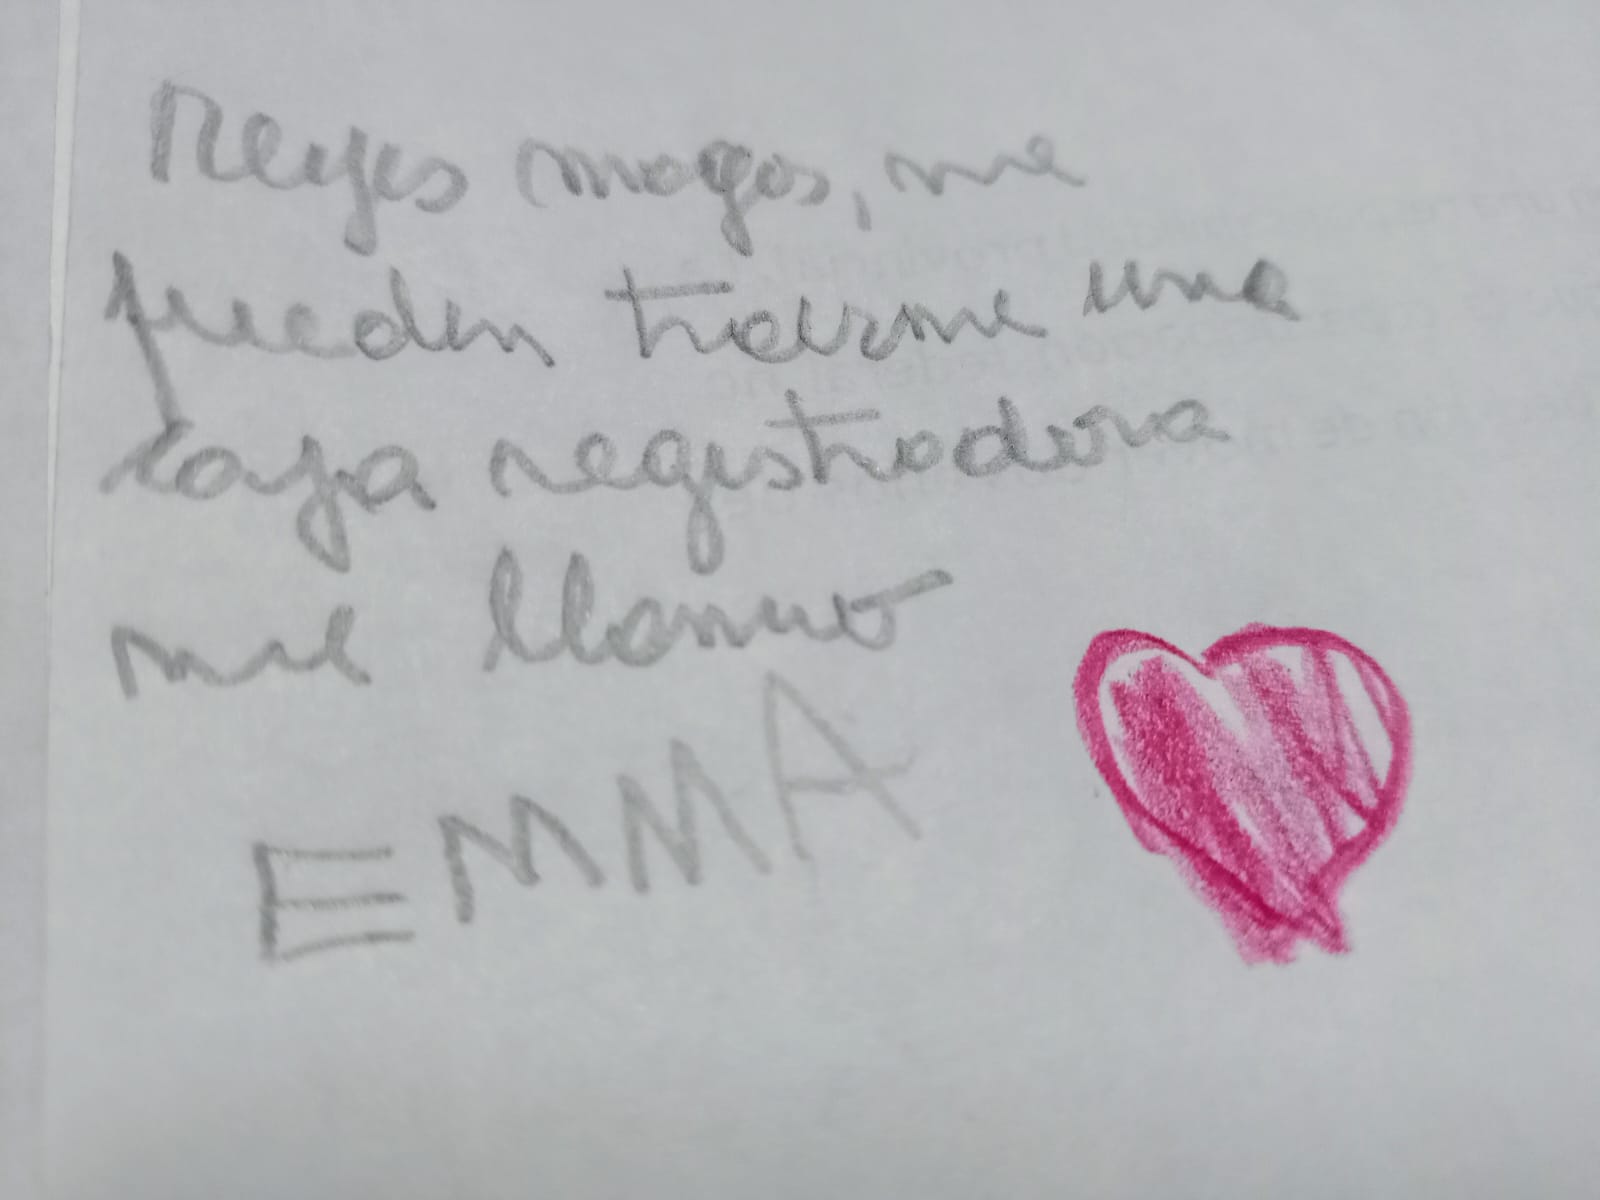 Reyes magos, me
pueden traerme una
caja registradora
me llamo
EMMA